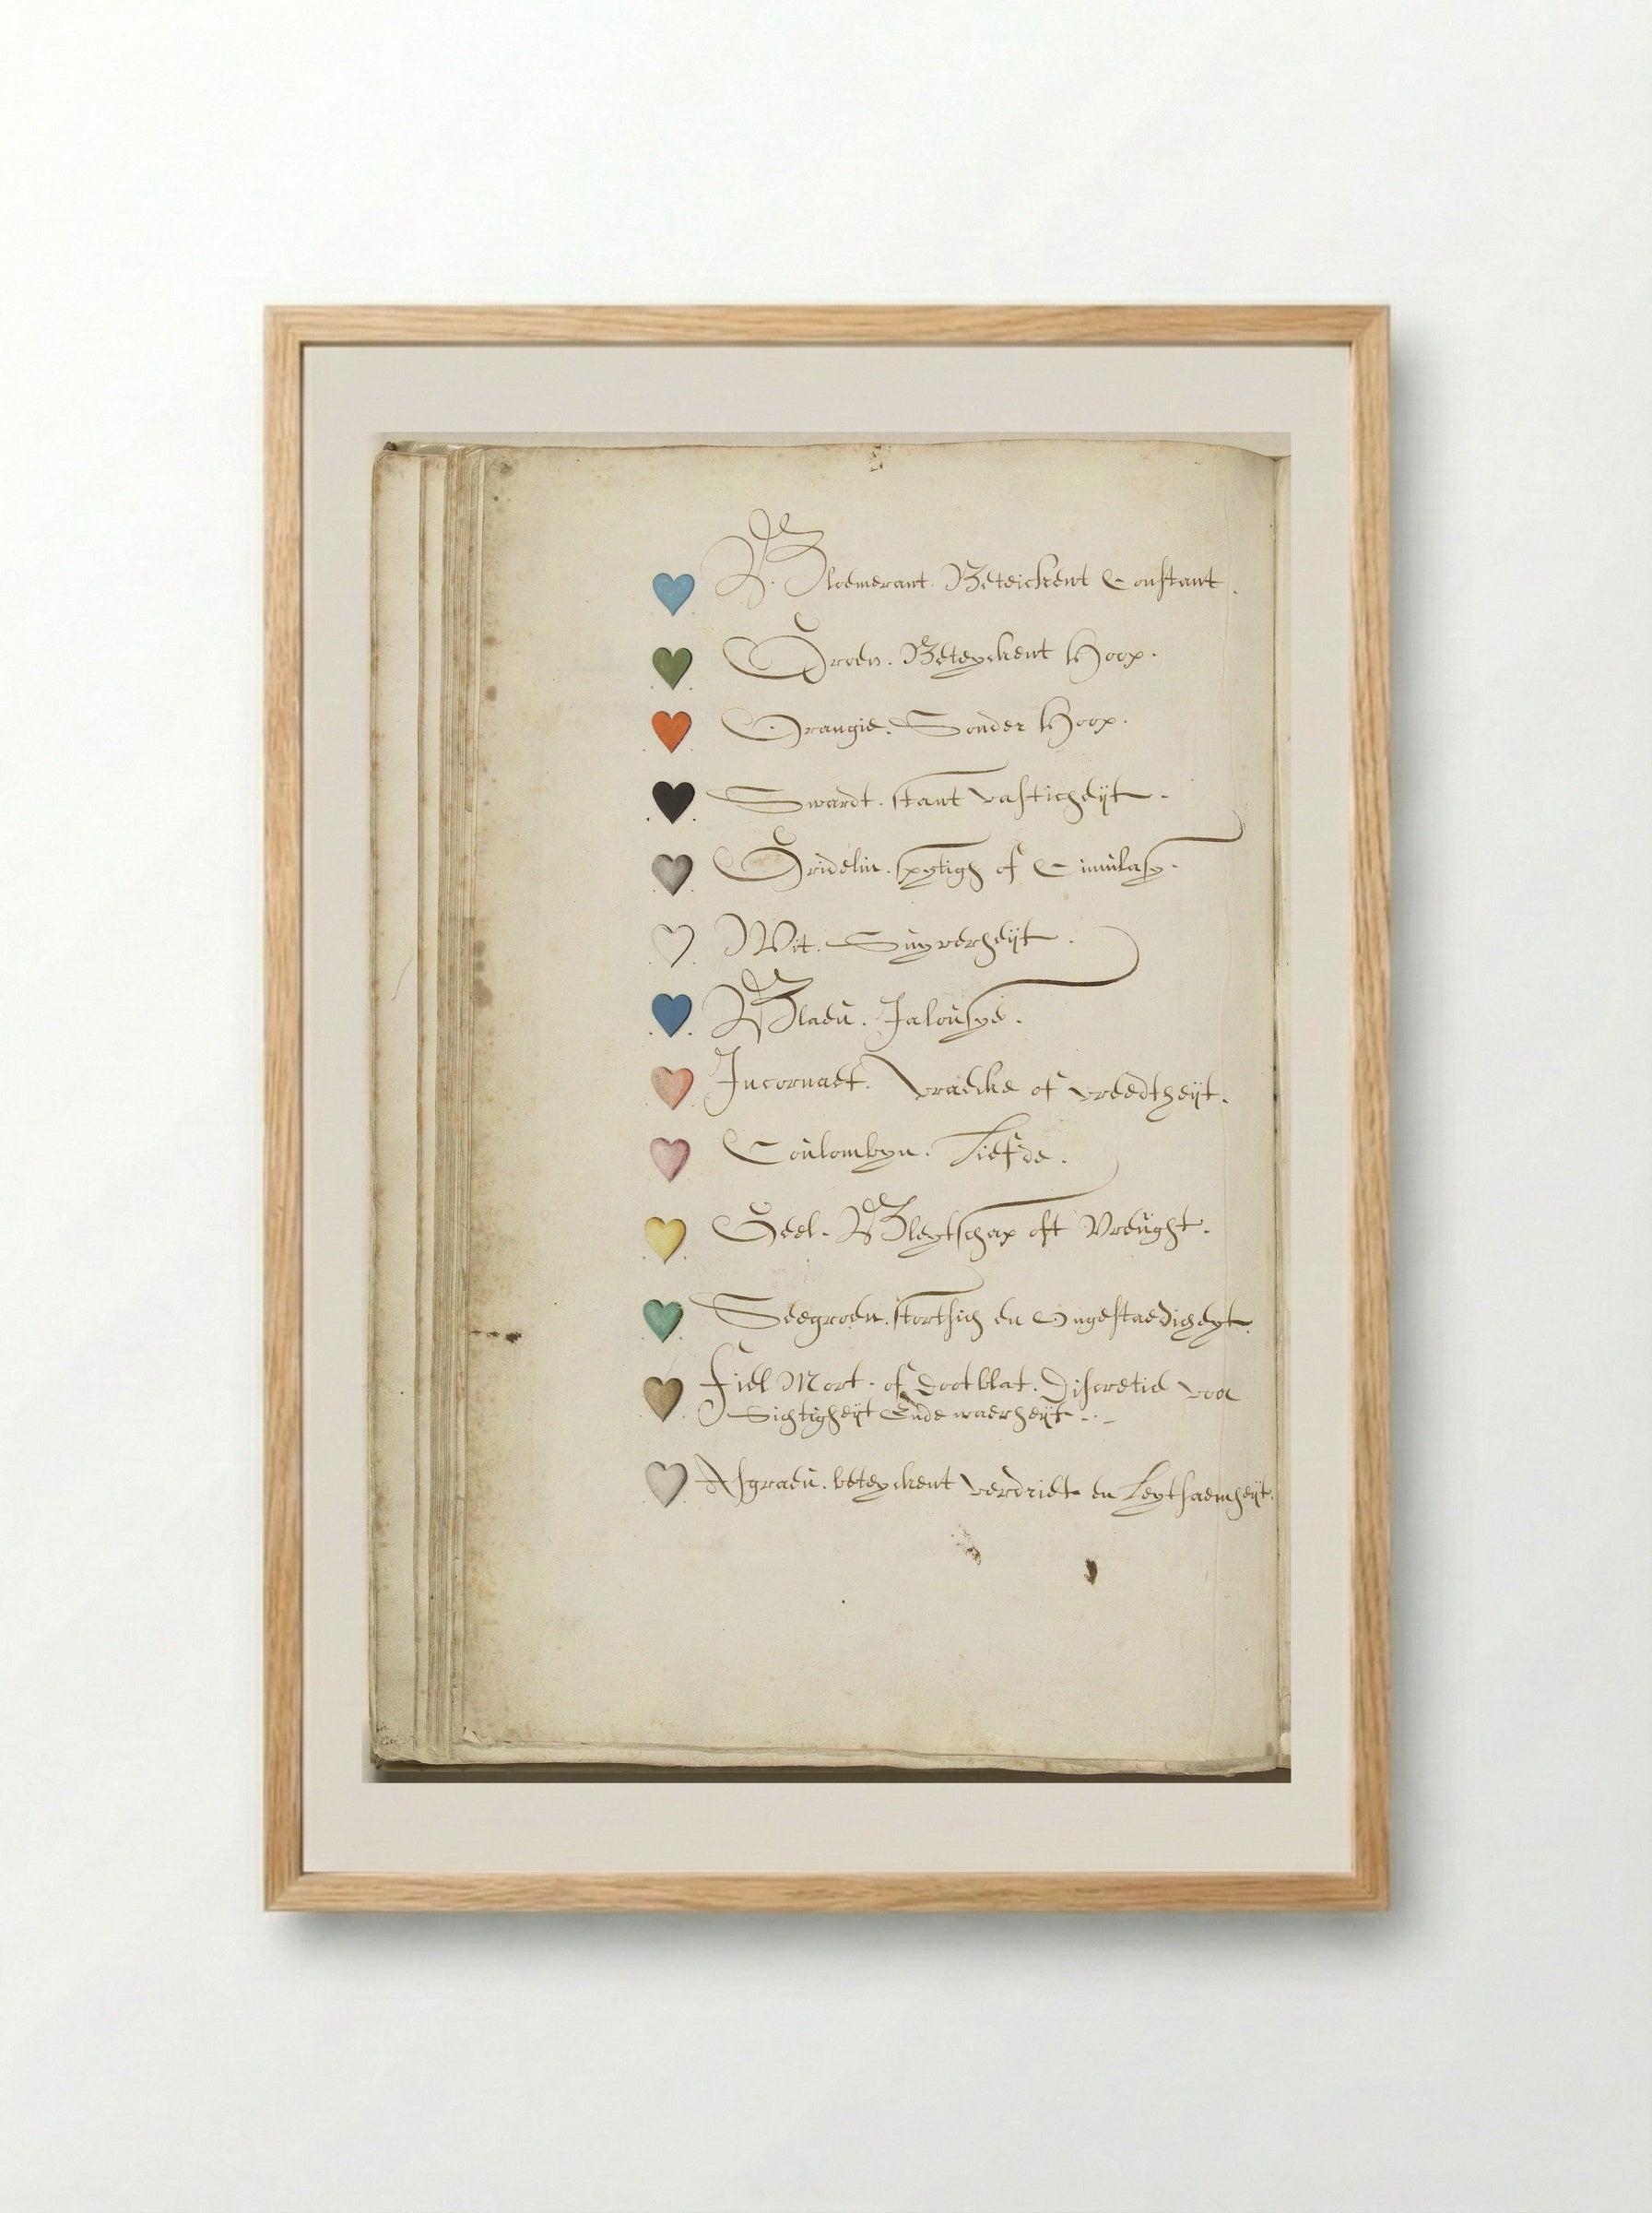 Bloemerant. Beteickent Constant.
Groen. Beteyckent Hoop.
Orangie. Sonder Hoop.
Swardt. stantvasticheÿt.
Gridelin. spytigh of Cimulasy.
Wit. Suyverheÿt.
Blaeu. Jalousye.
Incornaet. Vraecke of vreedtheÿt.
Coulombyn. Liefde.
Geel. Bleytschap oft Vreught.
Seegroen. stortsich en Ongestaedicheyt.
Fiel Mort. of dootblat. Discretie voor
Sichtigheÿt Ende waerheÿt
Asgraeu. beteyckent verdriet en Leytsaemheÿt.